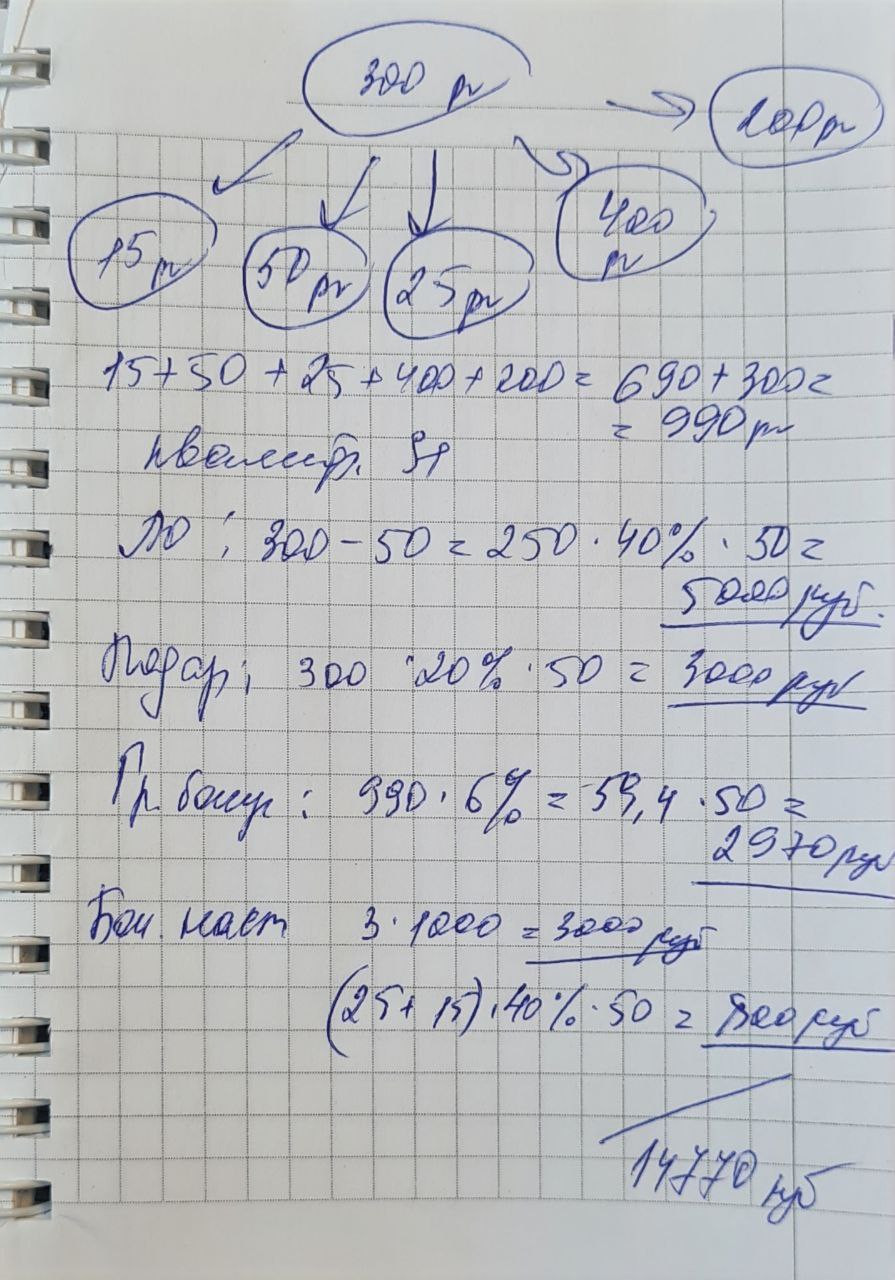 300 р
200 р
15 р
50 р
25 р
400
р
15 + 50 + 25 + 400 + 200 = 690 + 300 =
= 990 р
квалиф.
ЛО : 300 - 50 = 250 · 40% · 50 =
5000 руб.
Подар: 300 · 20% · 50 = 3000 руб
Гр. бонус : 990 · 6% = 59,4 · 50 =
2970 руб
Бон. наст 3 · 1000 = 3000 руб
(25 + 15) · 40% · 50 = 800 руб
14770 руб